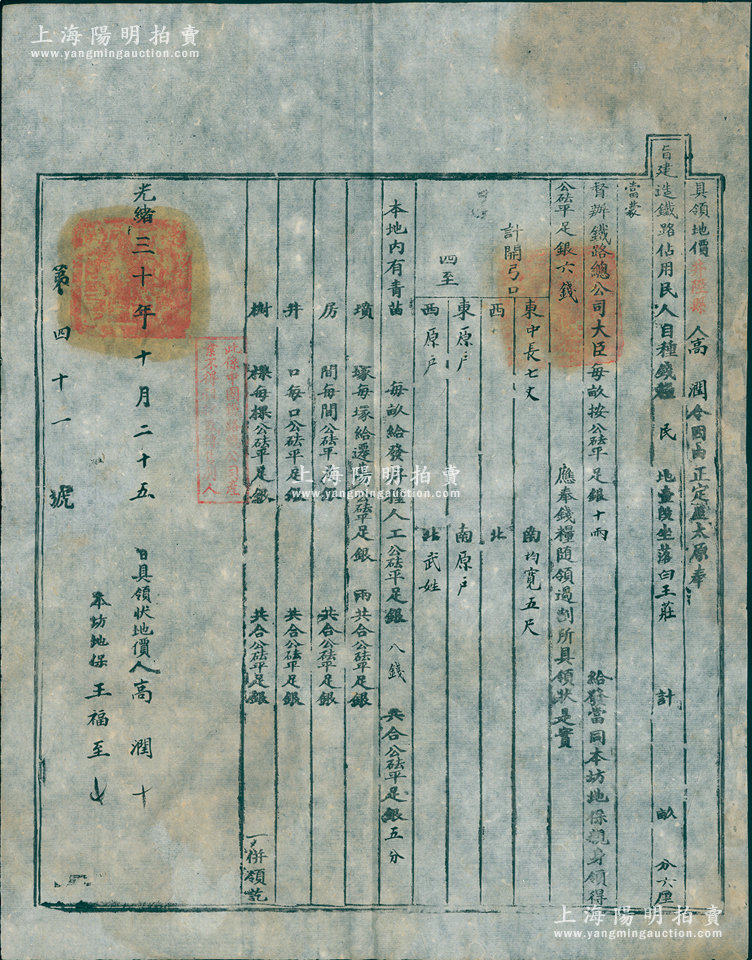 上海陽明拍賣
www.yangmingauction.com
上海陽明拍賣
www.yangmingauction.com
具領地價 井陘縣 人高潤今因由正定應太原奉
旨建造鐵路佔用民人自種錢糧民地壹段坐落白王莊 計 畝 分六厘
當蒙
督辦鐵路總公司大臣每畝按公砝平足銀十兩 給發當同本坊地保親身領得
公砝平足銀六錢 應奉錢糧隨領過割所具領狀是實
計開弓口 東中長七丈 南均寬五尺
西 北
四至 東原戶 南原戶
西原戶 北武姓
本地內有青苗 每畝給發 種人工公砝平足銀八錢 共合公砝平足銀五分
墳 塚每塚給遷 公砝平足銀 兩共合公砝平足銀
房 間每間公砝平足銀 共合公砝平足銀
井 口每口公砝平足銀 共合公砝平足銀
樹 棵每棵公砝平足銀 共合公砝平足銀 一併領訖
此係中國鐵路總公司產
業不得
人
光緒三十年十月二十五日具領狀地價人高潤十
本坊地保王福至
第四十一號
上海陽明拍賣
www.yangmingauction.com
上海陽明拍賣
www.yangmingauction.com